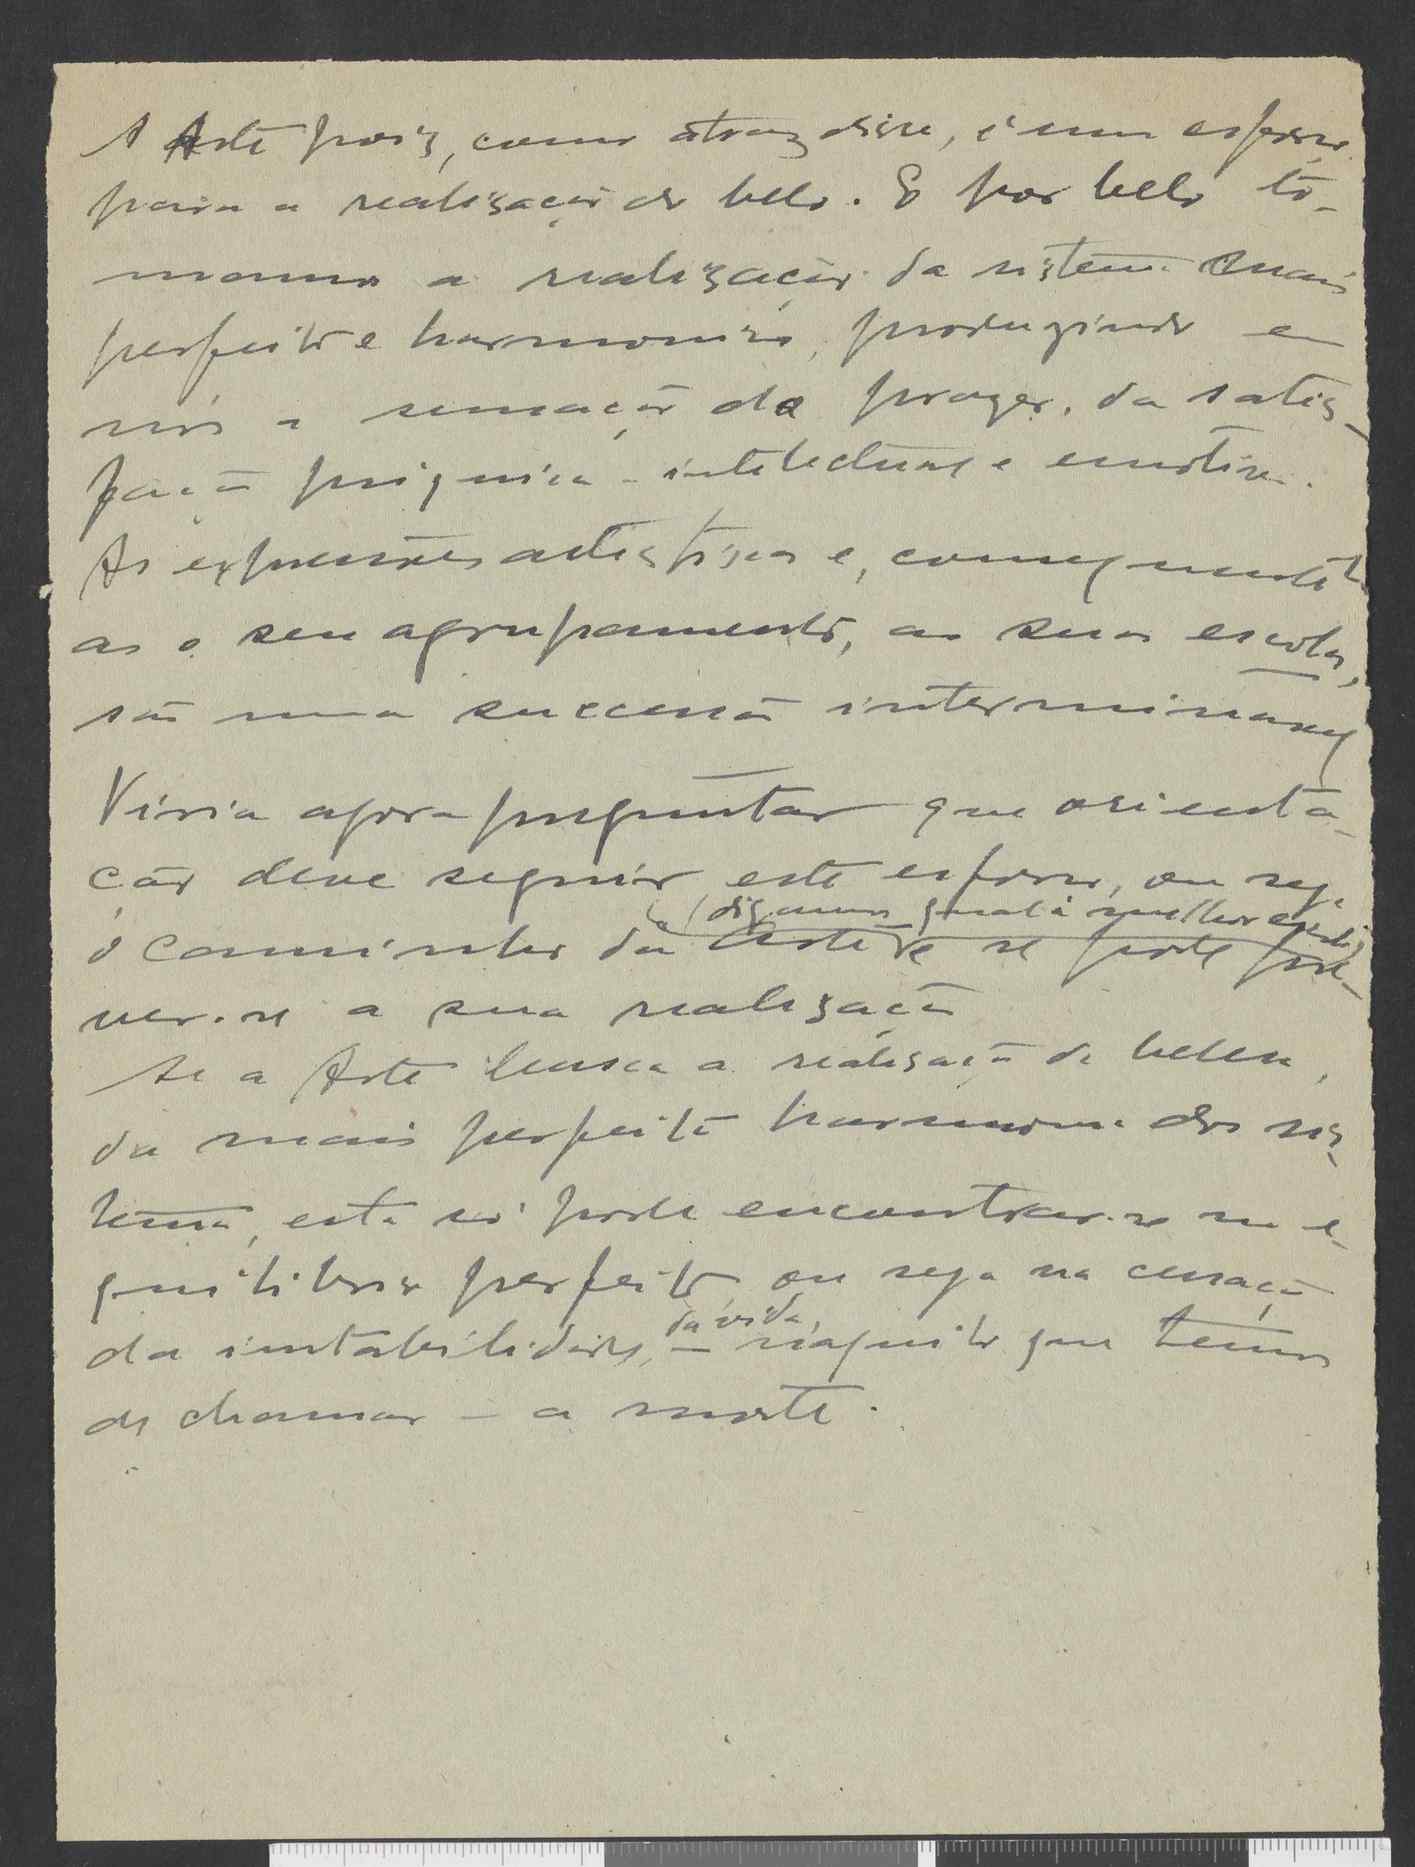 A Arte pois, como atraz disse, é um esforço
para a realisação do belo. E por belo to-
mamos a realisação da sistema mais
perfeito e harmonico, produzindo em
nós a sensação do prazer, da satis-
fação psiquica - intelectual e emotiva.
As expressões artisticas e, consequente
as o seu agrupamento, as suas escolas,
são uma successão interminavel
Viria agora preguntar que orienta-
ção deve seguir este esforço, ou seja
(digamos qual a melhor
o caminho da Arte e se pode pre-
ver-se a sua realisação
Se a Arte busca a realisação da beleza,
da mais perfeita harmonia dos sis-
tema, esta só pode encontrar-se no e-
quilibrio perfeito ou seja na cessação
da vida,
da instabilidade, – naquilo que temos
de chamar – a morte.